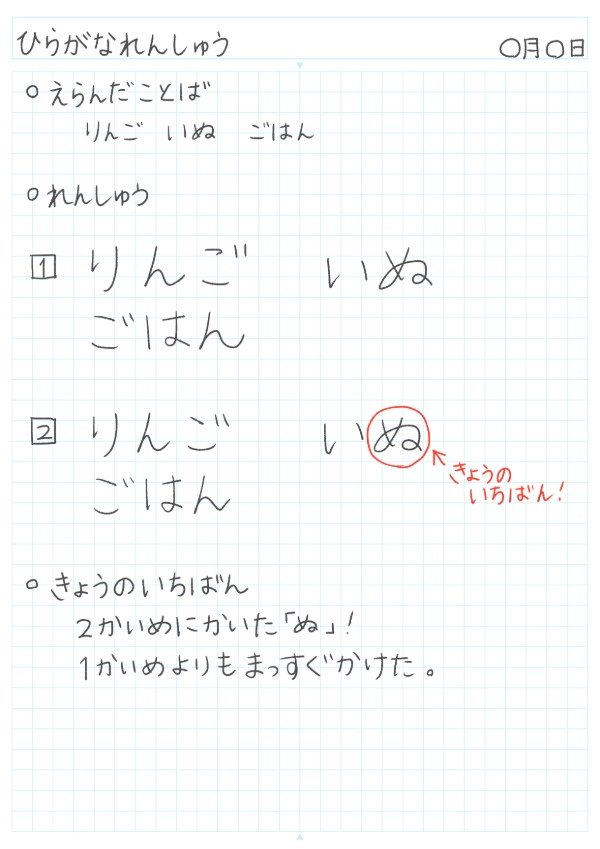 ひらがなれんしゅう
〇月〇日
○ えらんだことば
りんご いぬ ごはん
○ れんしゅう
1 りんご いぬ
ごはん
2 りんご いぬ
きょうの
いちばん!
ごはん
○ きょうのいちばん
2かいめにかいた「ぬ」!
1かいめよりもまっすぐかけた。